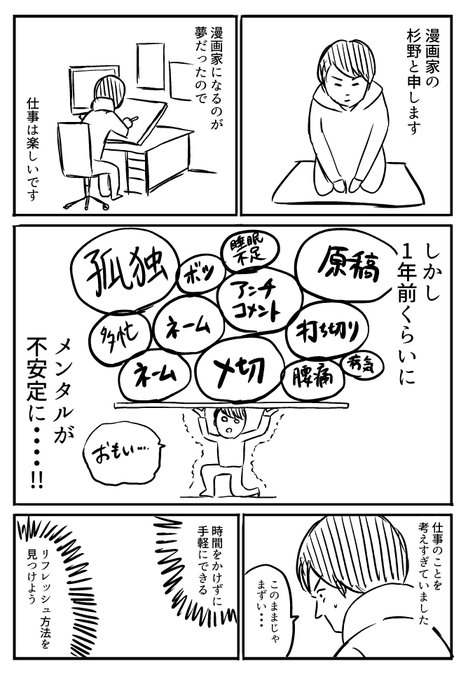 漫画家の
杉野と申します
漫画家になるのが
夢だったので
仕事は楽しいです
しかし
1年前くらいに
原稿
睡眠
不足
ボツ
孤独
アンチ
コメント
打ち切り
ネーム
多忙
病気
腰痛
〆切
ネーム
メンタルが
不安定に・・・・!!
おもい・・・
仕事のことを
考えすぎていました
このままじゃ
まずい・・・
時間をかけずに
手軽にできる
リフレッシュ方法を
見つけよう